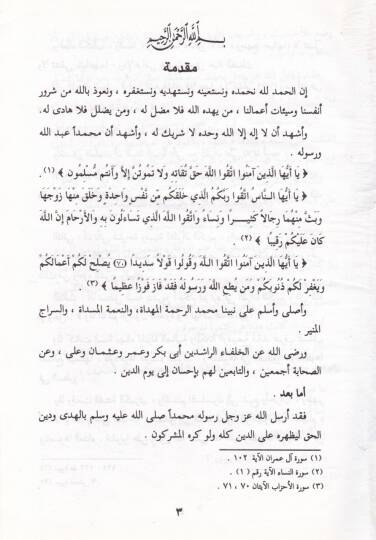 بسم الله الرحمن الرحيم
مقدمة
إن الحمد لله نحمده ونستعينه ونستهديه ونستغفره ، ونعوذ بالله من شرور
أنفسنا وسيئات أعمالنا ، من يهده الله فلا مضل له ، ومن يضلل فلا هادى له.
وأشهد أن لا إله إلا الله وحده لا شريك له ، وأشهد أن محمداً عبد الله
ورسوله .
﴿ يَا أَيُّهَا الَّذِينَ آمَنُوا اتَّقُوا اللَّهَ حَقَّ تُقَاتِهِ وَلَا تَمُوتُنَّ إِلاَّ وَأَنتُم مُّسْلِمُونَ ﴾ (١) .
﴿ يَا أَيُّهَا النَّاسُ اتَّقُوا رَبَّكُمُ الَّذِي خَلَقَكُم مِّن نَّفْسٍ وَاحِدَةٍ وَخَلَقَ مِنْهَا زَوْجَهَا
وَبَثَّ مِنْهُمَا رِجَالاً كَثِيرًا وَنِسَاءً وَاتَّقُوا اللَّهَ الَّذِي تَسَاءَلُونَ بِهِ وَالأَرْحَامَ إِنَّ اللَّهَ
كَانَ عَلَيْكُمْ رَقِيبًا ﴾ (٢) .
﴿ يَا أَيُّهَا الَّذِينَ آمَنُوا اتَّقُوا اللَّهَ وَقُولُوا قَوْلاً سَدِيدًا (٧٠) يُصْلِحْ لَكُمْ أَعْمَالَكُمْ
وَيَغْفِرْ لَكُمْ ذُنُوبَكُمْ وَمَن يُطِعِ اللَّهَ وَرَسُولَهُ فَقَدْ فَازَ فَوْزًا عَظِيمًا ﴾ (٣) .
وأصلى وأسلم على نبينا محمد الرحمة المهداة، والنعمة المسداة ، والسراج
المنير .
ورضى الله عن الخلفاء الراشدين أبى بكر وعمر وعثمان وعلى ، وعن
الصحابة أجمعين ، والتابعين لهم بإحسان إلى يوم الدين .
أما بعد .
فقد أرسل الله عز وجل رسوله محمداً صلى الله عليه وسلم بالهدى ودين
الحق ليظهره على الدين كله ولو كره المشركون .
(١) سورة آل عمران الآية ١٠٢ .
(٢) سورة النساء الآية رقم (١) .
(٣) سورة الأحزاب الآيتان ٧٠ ، ٧١ .
٣